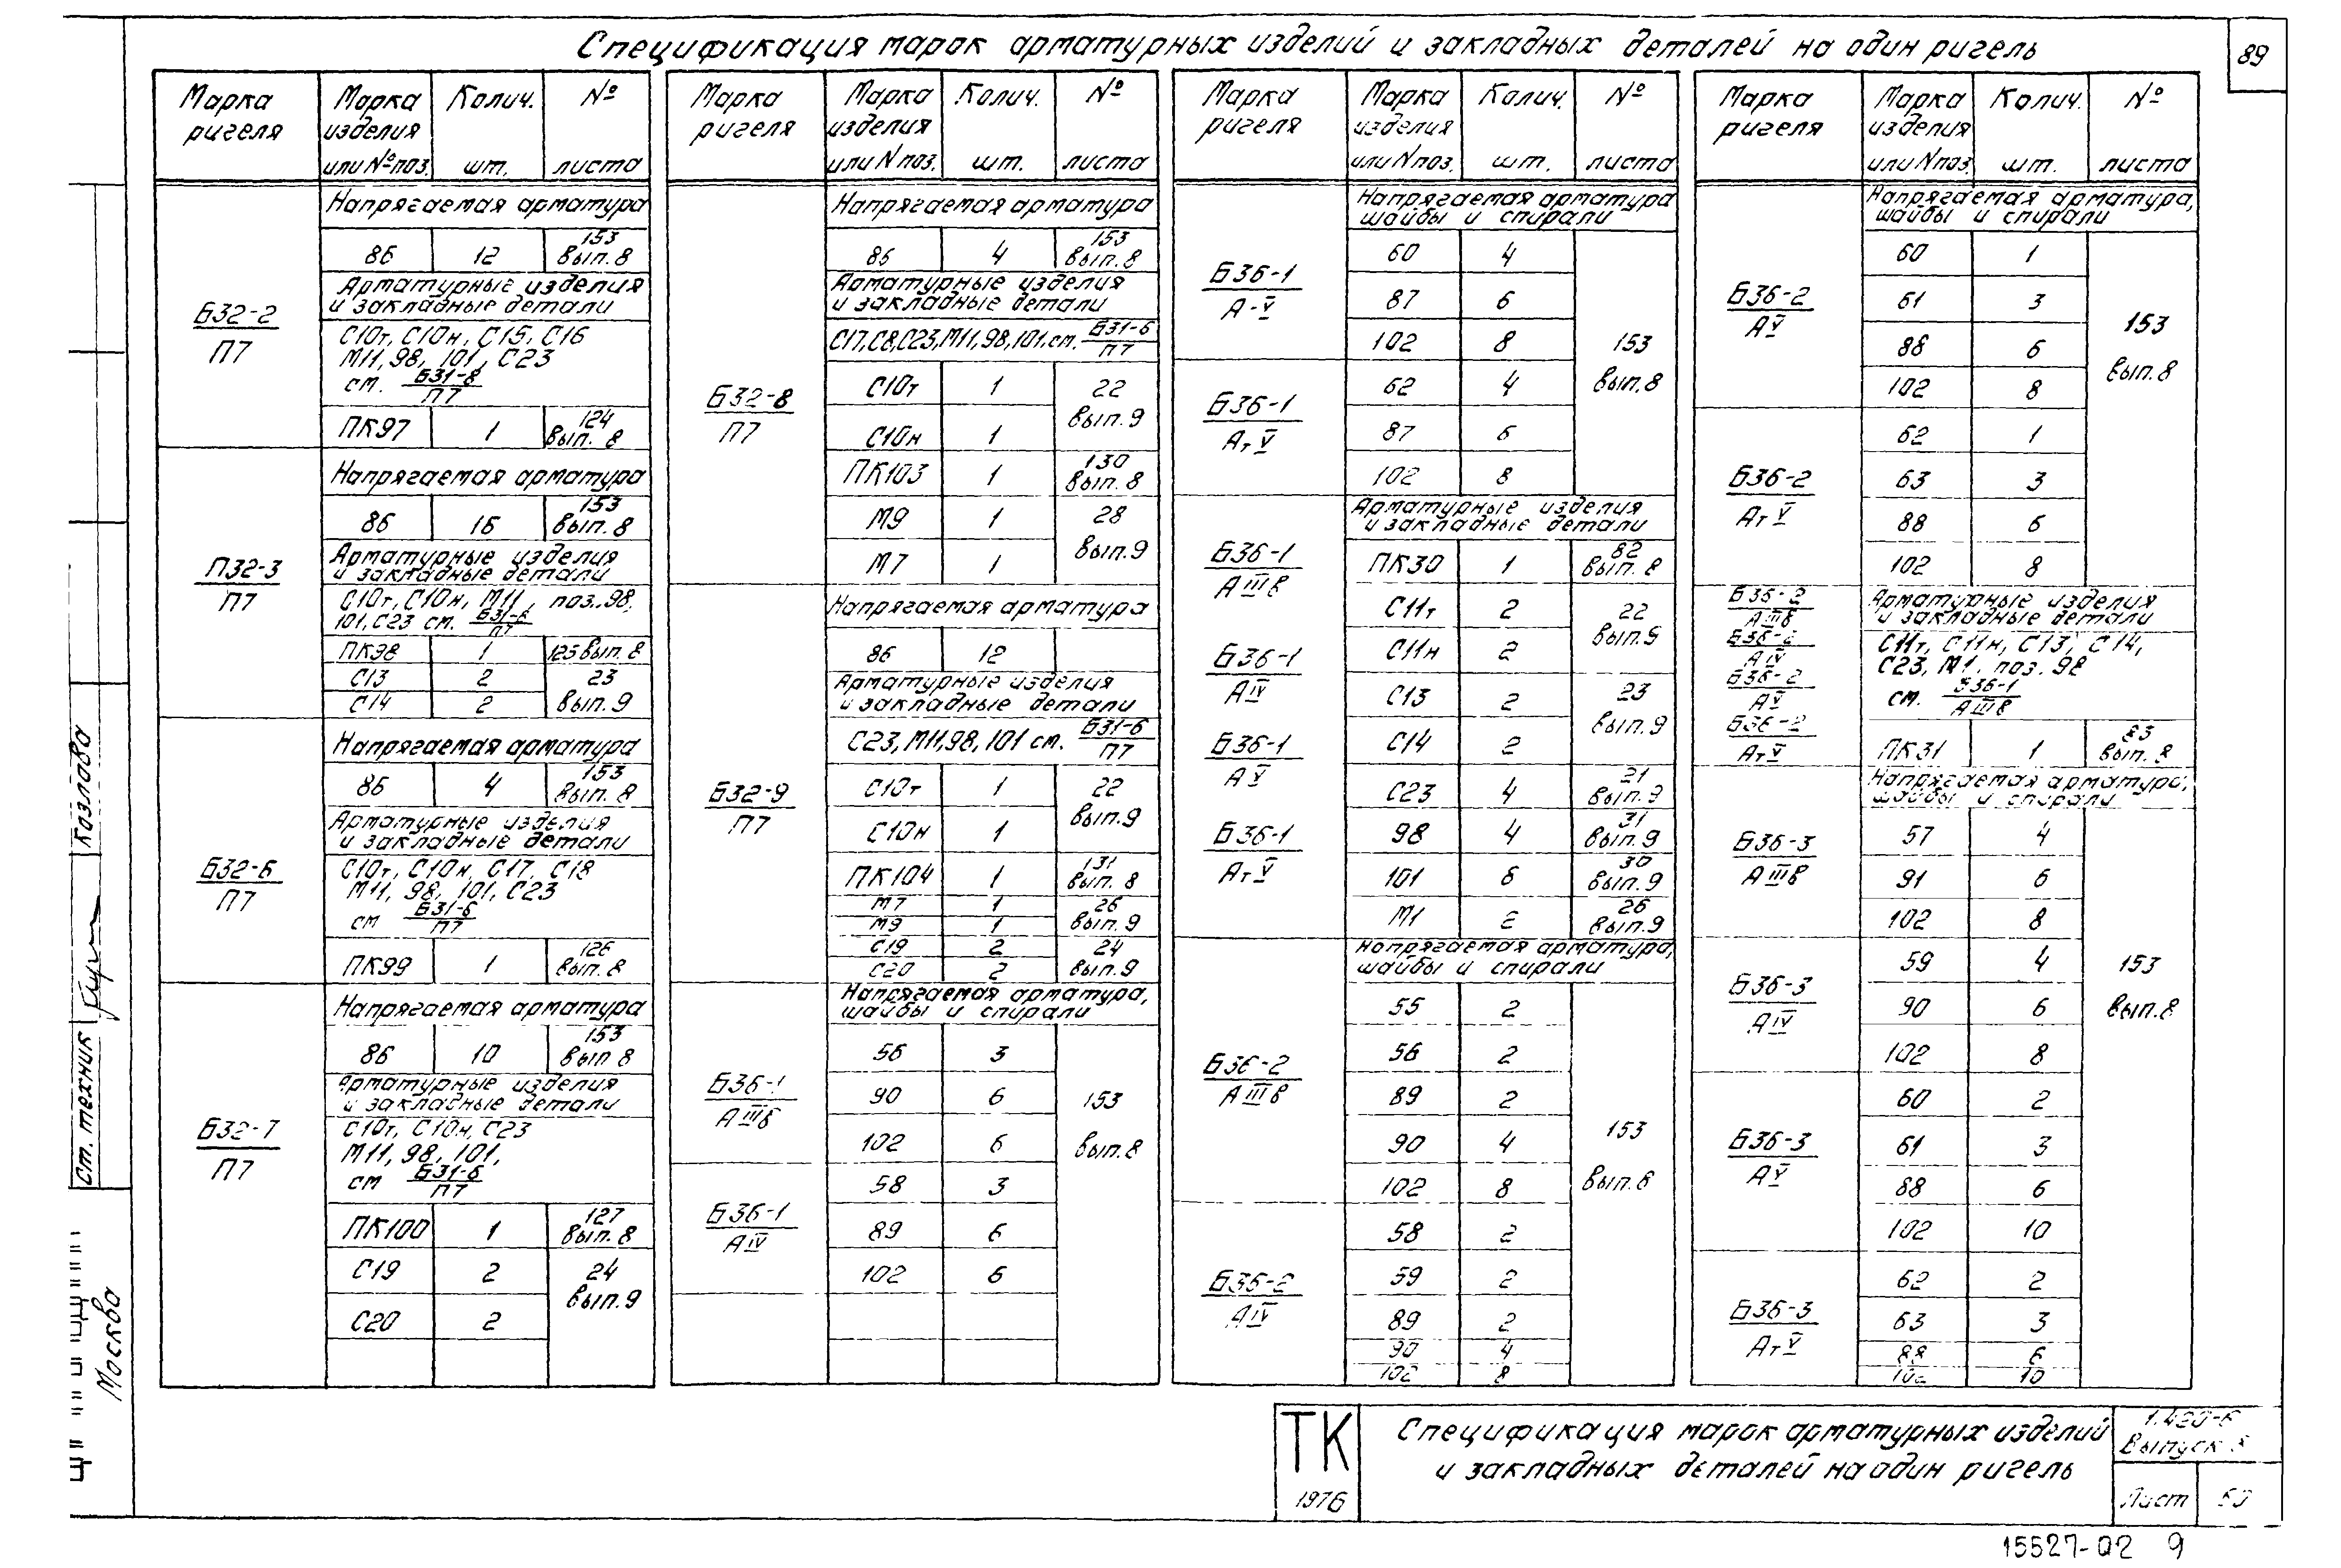 Спецификация марок арматурных изделий и закладных деталей на один ригель
89
Марка ригеля | Марка изделия или №поз. | Колич. шт. | № листа
Б32-2/П7
Напрягаемая арматура
86 | 12 | 153 вып. 8
Арматурные изделия
и закладные детали
С10т, С10н, С15, С16
М11, 98, 101, С23
см. Б31-8/П7
ПК97 | 1 | 124 вып. 8
П32-3/П7
Напрягаемая арматура
86 | 16 | 153 вып. 8
Арматурные изделия
и закладные детали
С10т, С10н, М11, поз. 98,
101, С23 см. Б31-6/П7
ПК98 | 1 | 125 вып. 8
С13 | 2 | 23
С14 | 2 | вып. 9
Б32-6/П7
Напрягаемая арматура
86 | 4 | 153 вып. 8
Арматурные изделия
и закладные детали
С10т, С10н, С17, С18
М11, 98, 101, С23
см Б31-6/П7
ПК99 | 1 | 126 вып. 8
Б32-7/П7
Напрягаемая арматура
86 | 10 | 153 вып 8
Арматурные изделия
и закладные детали
С10т, С10н, С23
М11, 98, 101,
см Б31-6/П7
ПК100 | 1 | 127 вып. 8
С19 | 2 | 24
С20 | 2 | вып. 9
Марка ригеля | Марка изделия или N поз. | Колич. шт. | № листа
Б32-8/П7
Напрягаемая арматура
86 | 4 | 153 вып. 8
Арматурные изделия
и закладные детали
С17, С8, С23, М11, 98, 101, см. Б31-6/П7
С10т | 1 | 22
С10н | 1 | вып. 9
ПК103 | 1 | 130 вып. 8
М9 | 1 | 28
М7 | 1 | вып. 9
Б32-9/П7
Напрягаемая арматура
86 | 12
Арматурные изделия
и закладные детали
С23, М11, 98, 101 см. Б31-6/П7
С10т | 1 | 22
С10н | 1 | вып. 9
ПК104 | 1 | 131 вып. 8
М7 | 1 | 26
М9 | 1 | вып. 9
С19 | 2 | 24
С20 | 2 | вып. 9
Напрягаемая арматура,
шайбы и спирали
Б36-1/АIIIв
56 | 3
90 | 6 | 153
102 | 6 | вып. 8
Б36-1/АIV
58 | 3
89 | 6
102 | 6
Марка ригеля | Марка изделия или N поз. | Колич. шт. | № листа
Напрягаемая арматура
шайбы и спирали
Б36-1/А-V
60 | 4
87 | 6
102 | 8 | 153
Б36-1/АтV
62 | 4 | вып. 8
87 | 6
102 | 8
Арматурные изделия
и закладные детали
Б36-1/АIIIв
Б36-1/АIV
Б36-1/АV
Б36-1/АтV
ПК30 | 1 | 82 вып. 8
С11т | 2 | 22
С11н | 2 | вып. 9
С13 | 2 | 23
С14 | 2 | вып. 9
С23 | 4 | 21 вып. 9
98 | 4 | 31 вып. 9
101 | 6 | 30 вып. 9
М1 | 2 | 26 вып. 9
Напрягаемая арматура,
шайбы и спирали
Б36-2/АIIIв
55 | 2
56 | 2
89 | 2
90 | 4 | 153
102 | 8 | вып. 8
Б36-2/АIV
58 | 2
59 | 2
89 | 2
90 | 4
102 | 8
Марка ригеля | Марка изделия или N поз. | Колич. шт. | № листа
Напрягаемая арматура,
шайбы и спирали
Б36-2/АV
60 | 1
61 | 3 | 153
88 | 6 | вып. 8
102 | 8
Б36-2/АтV
62 | 1
63 | 3
88 | 6
102 | 8
Б36-2/АIIIв
Б36-2/АIV
Б36-2/АV
Б36-2/АтV
Арматурные изделия
и закладные детали
С11т, С11н, С13, С14,
С23, М1, поз. 98
см. Б36-1/АIIIв
ПК31 | 1 | 83 вып. 8
Напрягаемая арматура,
шайбы и спирали
Б36-3/АIIIв
57 | 4
91 | 6
102 | 8
Б36-3/АIV
59 | 4 | 153
90 | 6 | вып. 8
102 | 8
Б36-3/АV
60 | 2
61 | 3
88 | 6
102 | 10
Б36-3/АтV
62 | 2
63 | 3
88 | 6
102 | 10
ст. техник
Козлова
Москва
ТК
1976
Спецификация марок арматурных изделий
и закладных деталей на один ригель
1.420-6
Выпуск
Лист
15527-02 9